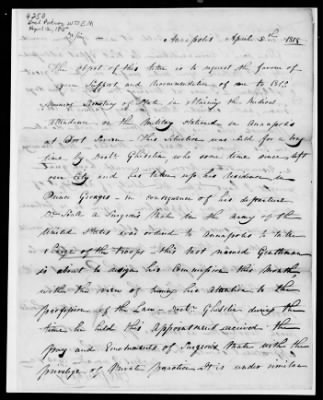 4250
April 12, 1815
Annapolis April 8th 1815
The object of this letter is to request the favour of
your Support and Recommendation of me to the
Secretary of State in obtaining the Medical
attendance on the Military Stationed in Annapolis
at Fort Severn. This Situation was held for a long
time by Doctr Ghiselin who some time since left
our City and has taken up his residence in
Prince Georges - in consequence of his departure
a Surgeons Mate in the army of the
United States was ordered to Annapolis to take
charge of the troops - this last named Gentleman
is about to resign his Commission this Month
with the view of turning his attention to the
profession of the Law - Doctr Ghiselin during the
time he held this Appointment received the
pay and Emoluments of Surgeons Mate with the
privilege of Private practice. It is under similar